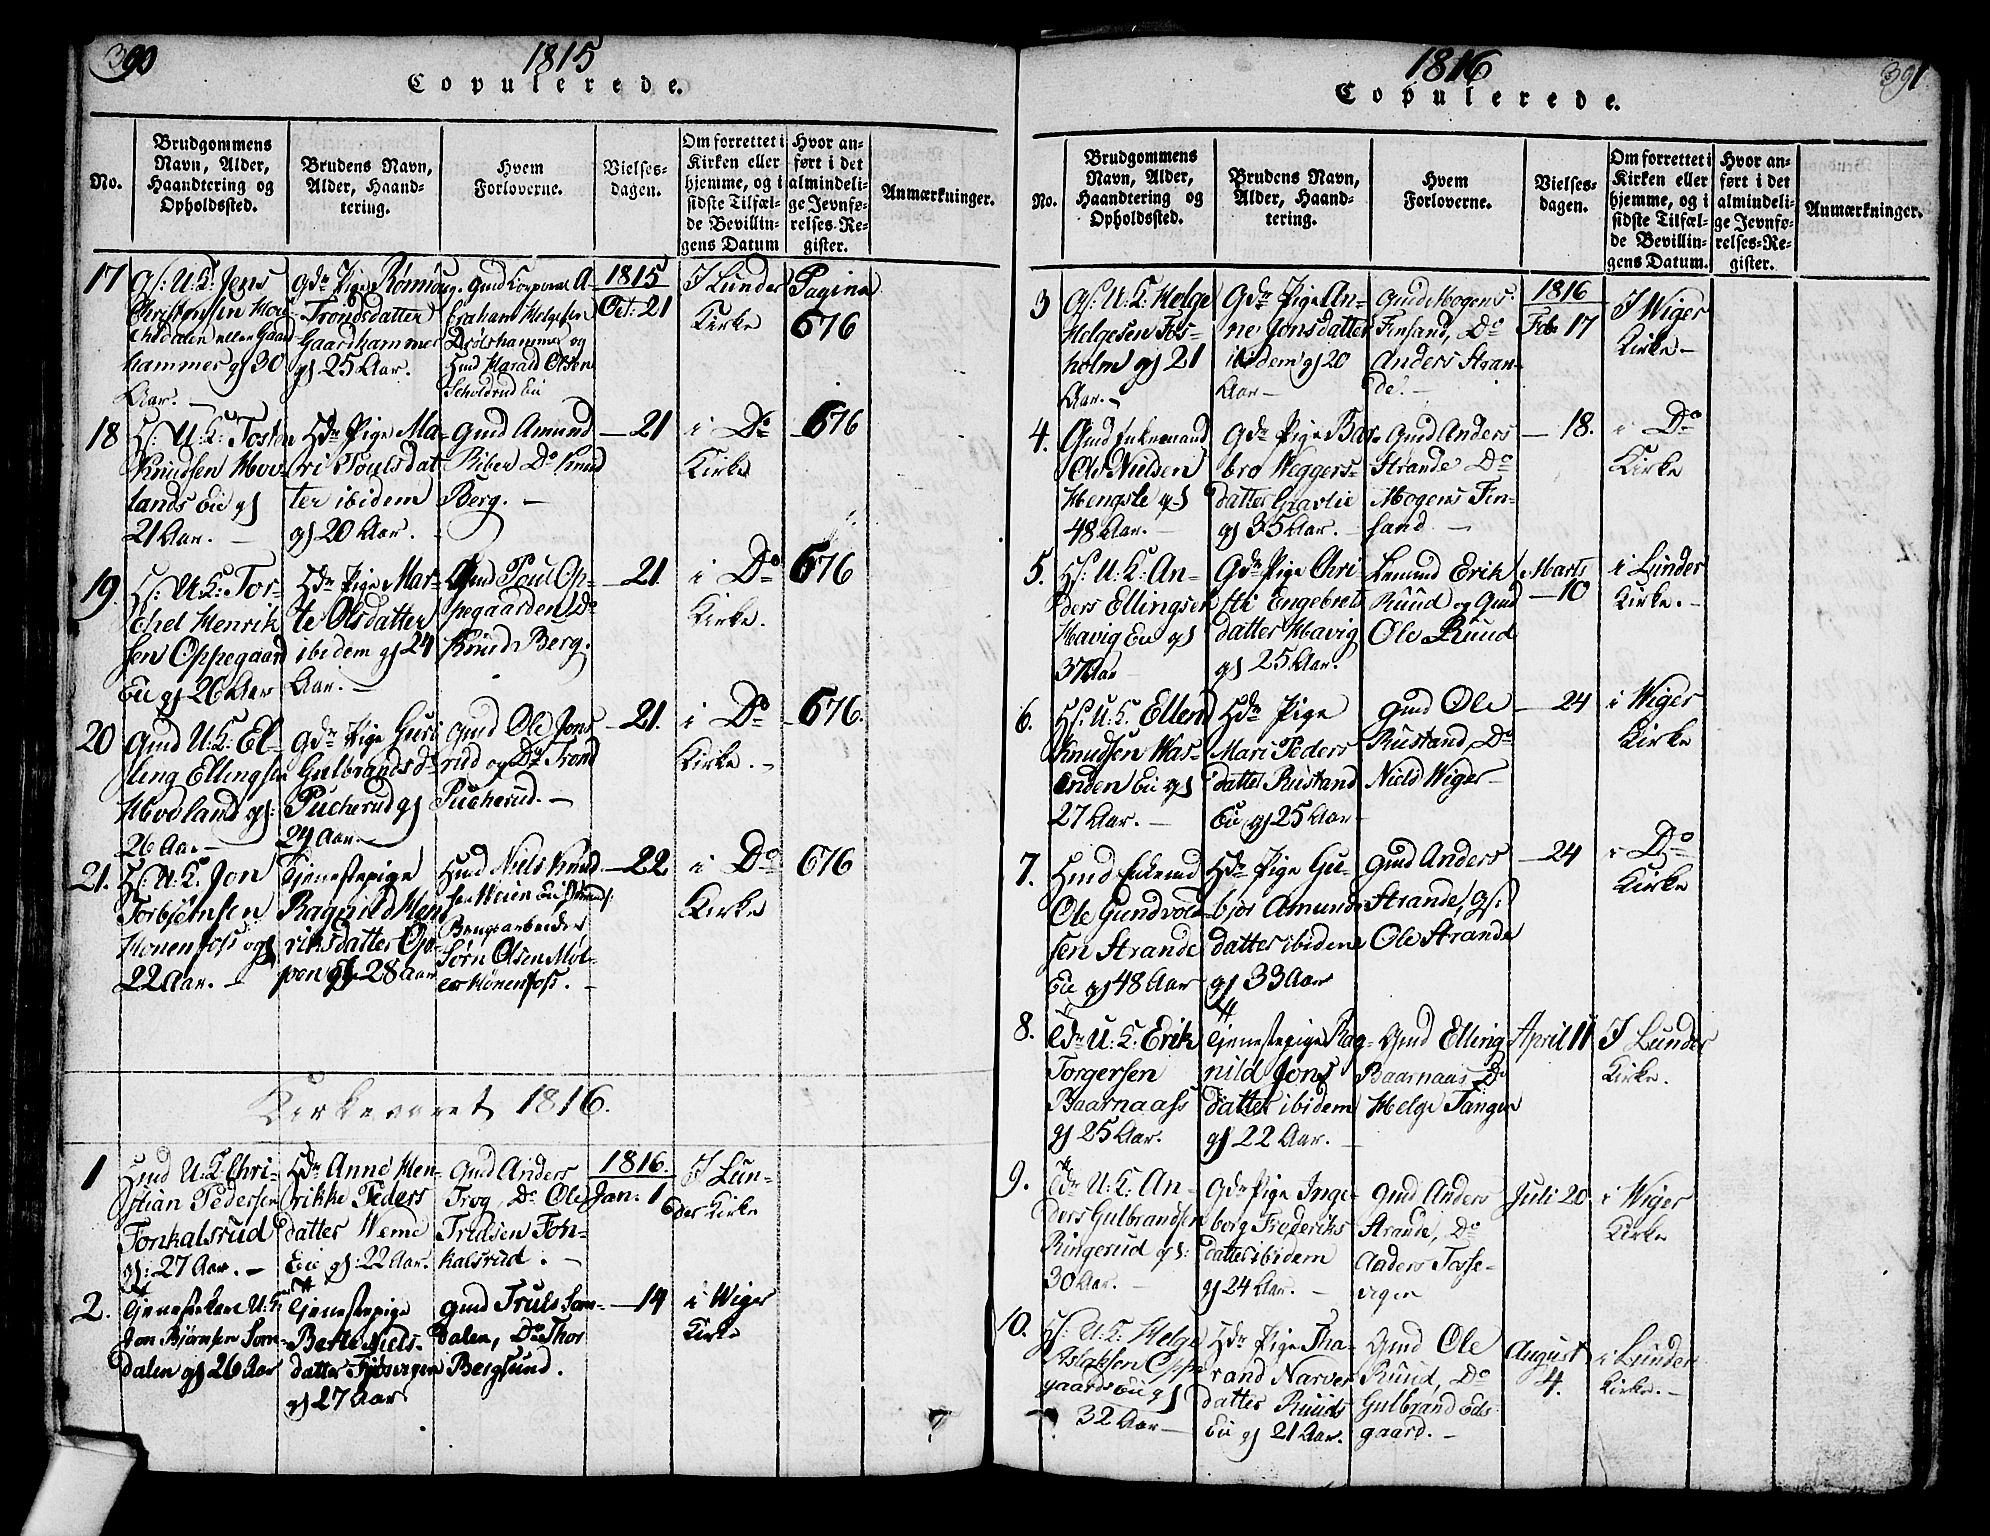 390
1815
Copulerede.
No.
Brudgommens
Navn, Alder,
Haandtering og
Opholdssted.
Brudens Navn,
Alder, Haand-
tering.
Hvem
Forloverne.
Vielses-
dagen.
Om forrettet i
Kirken eller
hjemme, og i
sidste Tilfæl-
de Bevillin-
gens Datum
Hvor an-
ført i det
almindeli-
ge Jevnfø-
relses-Re-
gister.
Anmærkninger.
17
Gs: U: K: Jens
Christensen
eller Gaard
hammer gl 30
Aar. —
Gdr Pige Rønnoug
Trondsdatter
Gaardhammer
gl 25 Aar.
Gmd Corporal A-
braham Helgesen
og
Hmd Harald Olsen
Eie
1815
Oct: 21
I Lunder
Kirke
Pagina
676
18
Hs: U: K: Tosten
Knudsen Hov-
lands Eie gl
21 Aar. —
Hdr Pige Ma-
ri Poulsdat
ter ibidem
gl 20 Aar.
Gmd Amund
Riber Do Knud
Berg. —
— 21
i Do
Kirke
676
19.
Hs: U: K: Tor-
chel Henrik
sen Oppegaard
Eie gl 26 Aar
Hdr Pige Mar-
te Olsdatter
ibidem gl 24
Aar. —
Gmd Poul Op-
pegaarden Do
Knud Berg.
— 21
i Do
Kirke.
676
20
Gmd U: K: El-
ling Ellingsen
Hovland gl:
26 Aar. —
Gdr Pige Guri
Gulbrandsdr
Pucherud gl
29 Aar. —
Gmd Ole Jons
rud og Do Trond
Pucherud. —
— 21.
i Do
Kirke. —
676.
21.
Hs: U: K: Jon
Torbjørnsen
Hönenfoss gl
22 Aar. —
Tjenestepige
Ragnild Hen
riksdatter Op-
pen gl 28 Aar
Hmd Niels Knud
sen Veien Eie
Brugsarbeider
Sørn Olsen Møl-
ler Hönenfoss. —
— 22
i Do
Kirke
676
Kirkeaaret 1816.
1
Hmd U: K: Chri-
stian Pedersen
Fonkalsrud
gl: 27 Aar. —
Hdr Anne Hen-
rikke Peders
datter Weme
Eie gl: 22 Aar.
Gmd Anders
Trog, Do Ole
Fridsen Fon-
kalsrud. —
1816.
Jan: 1
I Lun-
der Kirke
2.
Tjenestekarl U: K:
Jon Bjørnsen Som-
dalen gl 26 Aar
Tjenestepige
Berte Niels-
datter
gl 27 Aar
Gmd Truls Som-
dalen, Do Thor
Bergsund.
— 14
i Wiger
Kirke
1816
391
Copulerede.
No.
Brudgommens
Navn, Alder,
Haandtering og
Opholdssted.
Brudens Navn,
Alder, Haand-
tering.
Hvem
Forloverne.
Vielses-
dagen.
Om forrettet i
Kirken eller
hjemme, og i
sidste Tilfæl-
de Bevillin-
gens Datum.
Hvor an-
ført i det
almindeli-
ge Jevnfø-
relses-Re-
gister.
Anmærkninger.
3
Gs: U: K: Helge
Helgesen Fos-
holm gl 21
Aar. —
Gdr Pige An-
ne Jonsdatter
ibidem gl 20
Aar —
Gmd Mogens
Finsand, Do
Anders Stran-
de. —
1816
Feb: 17
I Wiger
Kirke —
4.
Gmd Enkemand
Ole Nielsen
Hengsle gl
48 Aar. —
Gdr Pige Bar-
bro Weggers-
datter Gravlie
gl 35 Aar. —
Gmd Anders
Strande Do
Mogens Fin-
sand. —
— 18.
i Do
Kirke
5.
Hs: U: K: An-
ders Ellingsen
Havig Eie gl
37 Aar
Gdr Pige Chri
sti Engebrets
datter Havig
gl 25 Aar.
Lemand Erik
Ruud og Gmd
Ole Ruud
Marts
— 10
i Lunder
Kirke. —
6.
Hs: U: K: Ellend
Knudsen Was-
enden Eie gl
27 Aar. —
Hdr Pige
Mari Peders
datter Rustand
Eie gl 25 Aar
Gmd Ole
Rustand, Do
Niels Wiger —
— 24
i Wiger
Kirke
7.
Hmd Enkemd
Ole Gundvold-
sen Strande
Eie gl 48 Aar
Hdr Pige Gu-
bjør Amunds
datter ibidem
gl 33 Aar
Gmd Anders
Strande, gs:
Ole Strande
— 24
i Do
Kirke
8.
U: K: Erik
Torgersen
Baarnaas
gl 25 Aar.
Tjenestepige Rag-
nild Jons
datter ibidem
gl 22 Aar. —
Gmd Elling
Baarnaas, Do
Helge Tangen
April 11
I Lunder
Kirke.
9.
U: K: An-
ders Gulbrandsen
Ringerud gl:
30 Aar. —
Gdr Pige Inge-
borg Frederiks
datter ibidem
gl 24 Aar. —
Gmd Anders
Strande, Do
Anders Tosse-
vigen
Juli 20.
i Wiger
Kirke
10.
Hs: U: K: Helge
Aslaksen Oppe
gaards Eie gl
32 Aar —
Hdr Pige Tha-
rand Narver
datter Ruuds
Eie gl 21 Aar.
Gmd Ole
Ruud, Do
Gulbrand Eds-
gaard. —
August
4.
i Lunder
Kirke. —